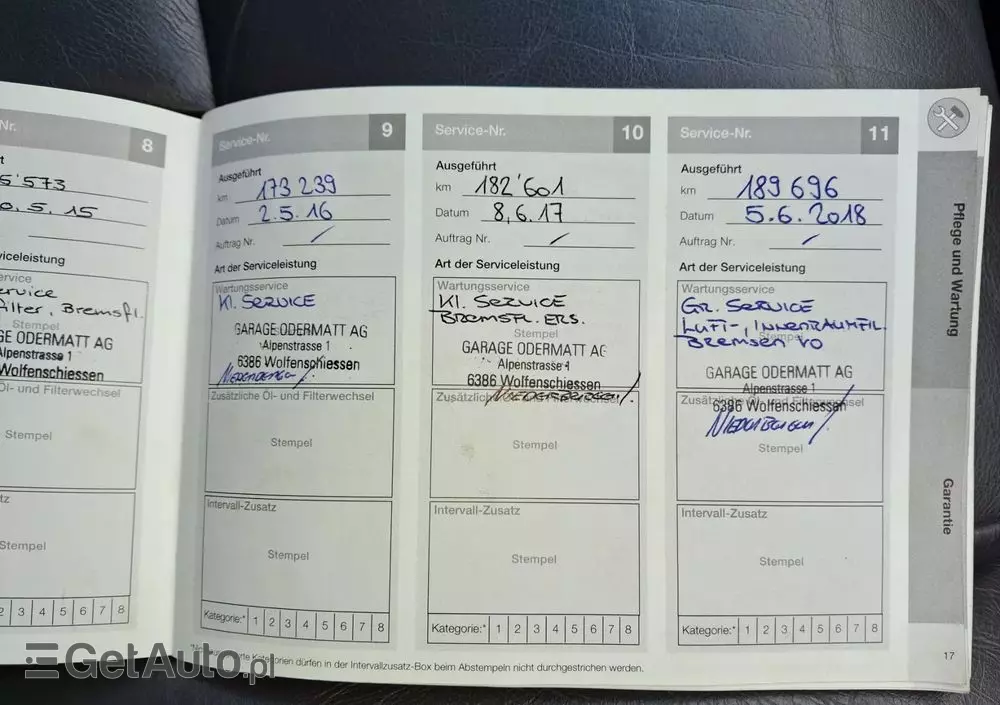 Nr. 8
5'573
0.5.15
viceleistung
ervice
ervice
ilter, Bremsfl.
Stempel
GE ODERMATT AG
Alpenstrasse 1
Wolfenschiessen
Öl- und Filterwechsel
Stempel
tz
Stempel
2 3 4 5 6 7 8
Service-Nr. 9
Ausgeführt
km 173 239
Datum 2.5.16
Auftrag Nr. /
Art der Serviceleistung
Wartungsservice
Kl. Service
GARAGE ODERMATT AG
Alpenstrasse 1
6386 Wolfenschiessen
Zusätzliche Öl- und Filterwechsel
Stempel
Intervall-Zusatz
Stempel
Kategorie:* 1 2 3 4 5 6 7 8
Service-Nr. 10
Ausgeführt
km 182'601
Datum 8,6.17
Auftrag Nr. /
Art der Serviceleistung
Wartungsservice
Kl. Service
Bremsfl. ERS.
Stempel
GARAGE ODERMATT AG
Alpenstrasse 1
6386 Wolfenschiessen
Zusätzliche Öl- und Filterwechsel
Stempel
Intervall-Zusatz
Stempel
Kategorie:* 1 2 3 4 5 6 7 8
Service-Nr. 11
Ausgeführt
km 189 696
Datum 5.6.2018
Auftrag Nr. /
Art der Serviceleistung
Wartungsservice
Gr. Service
Luft-, Innenraumfil.
Stempel
Bremsen VO
GARAGE ODERMATT AG
Alpenstrasse 1
Zusätzliche Öl- und Filterwechsel
6386 Wolfenschiessen
Stempel
Intervall-Zusatz
Stempel
Kategorie:* 1 2 3 4 5 6 7 8
Kategorien dürfen in der Intervallzusatz-Box beim Abstempeln nicht durchgestrichen werden.
Pflege und Wartung
Garantie
17
GetAuto.pl